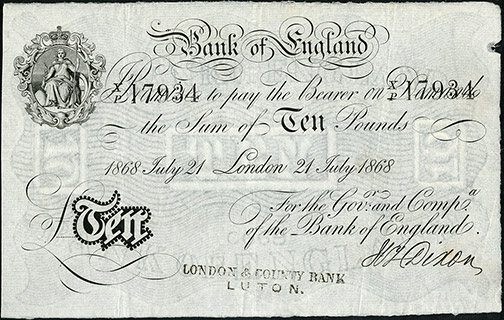 Bank of England
I Promise to pay the Bearer on Demand
17934 17934
the Sum of Ten Pounds
1868 July 21 London 21 July 1868
For the Govr. and Compa.
of the Bank of England.
£Ten
Dixon
LONDON & COUNTY BANK
LUTON.